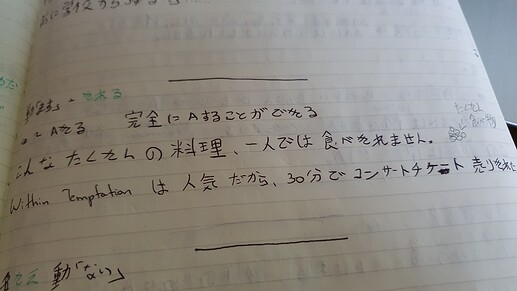 きれる
Aきる 完全に Aすることができる
たくさん
食べ物
こんな たくさん の 料理、一人では 食べきれません。
Within Temptation は 人気 だから、30分で コンサートチケット 売りきれた
動「ない」